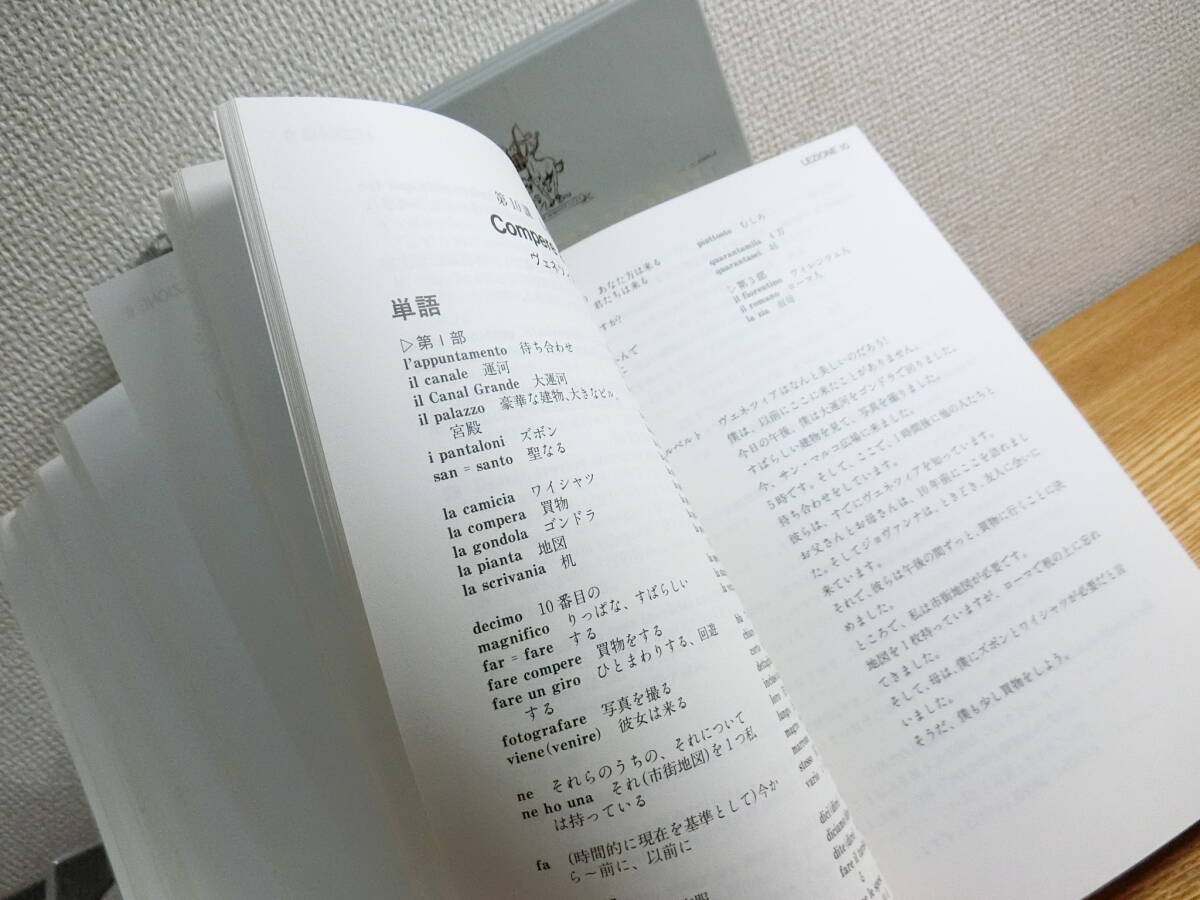 第10課
Compere
ヴェネツィ
単語
▷第1部
l'appuntamento 待ち合わせ
il canale 運河
il Canal Grande 大運河
il palazzo 豪華な建物、大きなビル、
宮殿
i pantaloni ズボン
san = santo 聖なる
la camicia ワイシャツ
la compera 買物
la gondola ゴンドラ
la pianta 地図
la scrivania 机
decimo 10番目の
magnifico りっぱな、すばらしい
far = fare する
fare compere 買物をする
fare un giro ひとまわりする、回遊
する
fotografare 写真を撮る
viene(venire) 彼女は来る
ne それらのうちの、それについて
ne ho una それ(市街地図)を1つ私
は持っている
fa (時間的に現在を基準として)今か
ら〜前に、以前に
LEZIONE 10
あなた方は来る
君たちは来る
すか?
piuttosto むしろ
quarantamila 4万
quarantasei 46
▷第3部
il fiorentino フィレンツェ人
il romano ローマ人
la zia
ルベルト
ヴェネツィアはなんと美しいのだろう!
僕は、以前にここに来たことがありません。
今日の午後、僕は大運河をゴンドラで回りました。
すばらしい建物を見て、写真を撮りました。
今、サン・マルコ広場に来ました。
5時です。そして、ここで、1時間後に他の人たちと
待ち合わせをしています。
彼らは、すでにヴェネツィアを知っています。
お父さんとお母さんは、10年前にここを訪れまし
た。そしてジョヴァンナは、ときどき、友人に会いに
来ています。
それで、彼らは午後の間ずっと、買物に行くことに決
めました。
ところで、私は市街地図が必要です。
地図を1枚持っていますが、ローマで机の上に忘れ
てきました。
そして、母は、僕にズボンとワイシャツが必要だと言
いました。
そうだ、僕も少し買物をしよう。